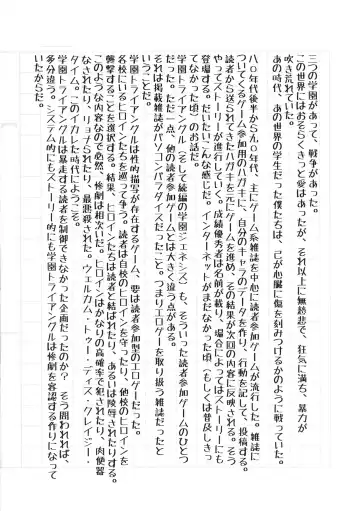 三つの学園があって、戦争があった。
この世界にはおそらくきっと愛はあったが、それ以上に無慈悲で、狂気に満ち、暴力が
吹き荒れていた。
あの時代、あの世界の学生だった僕たちは、己が心臓に傷を刻みつけるかのように戦っていた。
八〇年代後半から九〇年代、主にゲーム系雑誌を中心に読者参加ゲームが流行した。雑誌に
ついてくるゲーム参加用のハガキに、自分のキャラのデータを作り、行動を記して、投稿する。
読者から送られてきたハガキを元にゲームを進め、その結果が次回の内容に反映される。そう
やってストーリーが進行していく。成績優秀者は名前が載り、場合によってはストーリーにも
登場する。だいたいこんな感じだ。インターネットがまだなかった頃（もしくは普及しきっ
てなかった頃）のお話だ。
学園トライアングル、そして続編の学園フェネシスも、そういった読者参加ゲームのひとつ
だった。ただ一点、他の読者参加ゲームとは大きく違う点がある。
それは掲載雑誌がパソコンパラダイスだったこと。つまりエロゲーを取り扱う雑誌だったと
いうことだ。
学園トライアングルは性的描写が存在するゲーム、要は読者参加型のエロゲーだった。
名校にいるヒロインたちを巡って争う。読者は自校のヒロインを守ったり、他校のヒロインを
襲撃することを選択する。結果、ヒロインたちは読者と結ばれたり、あるいは陵辱されたりする。
このような内容なので必然、惨劇は相次いだ。ヒロインはかなりの高確率で犯されたり、肉便器
なされたり、リョナられたり、最悪殺された。ウェルカム・トゥー・ディス・クレイジー・
タイム。このイカレた時代にようこそ。
学園トライアングルは暴走する読者を制御できなかった企画だったのか？　そう問われれば、
多分違う。システム的にもストーリー的にも学園トライアングルは惨劇を容認する作りになって
いたからだ。